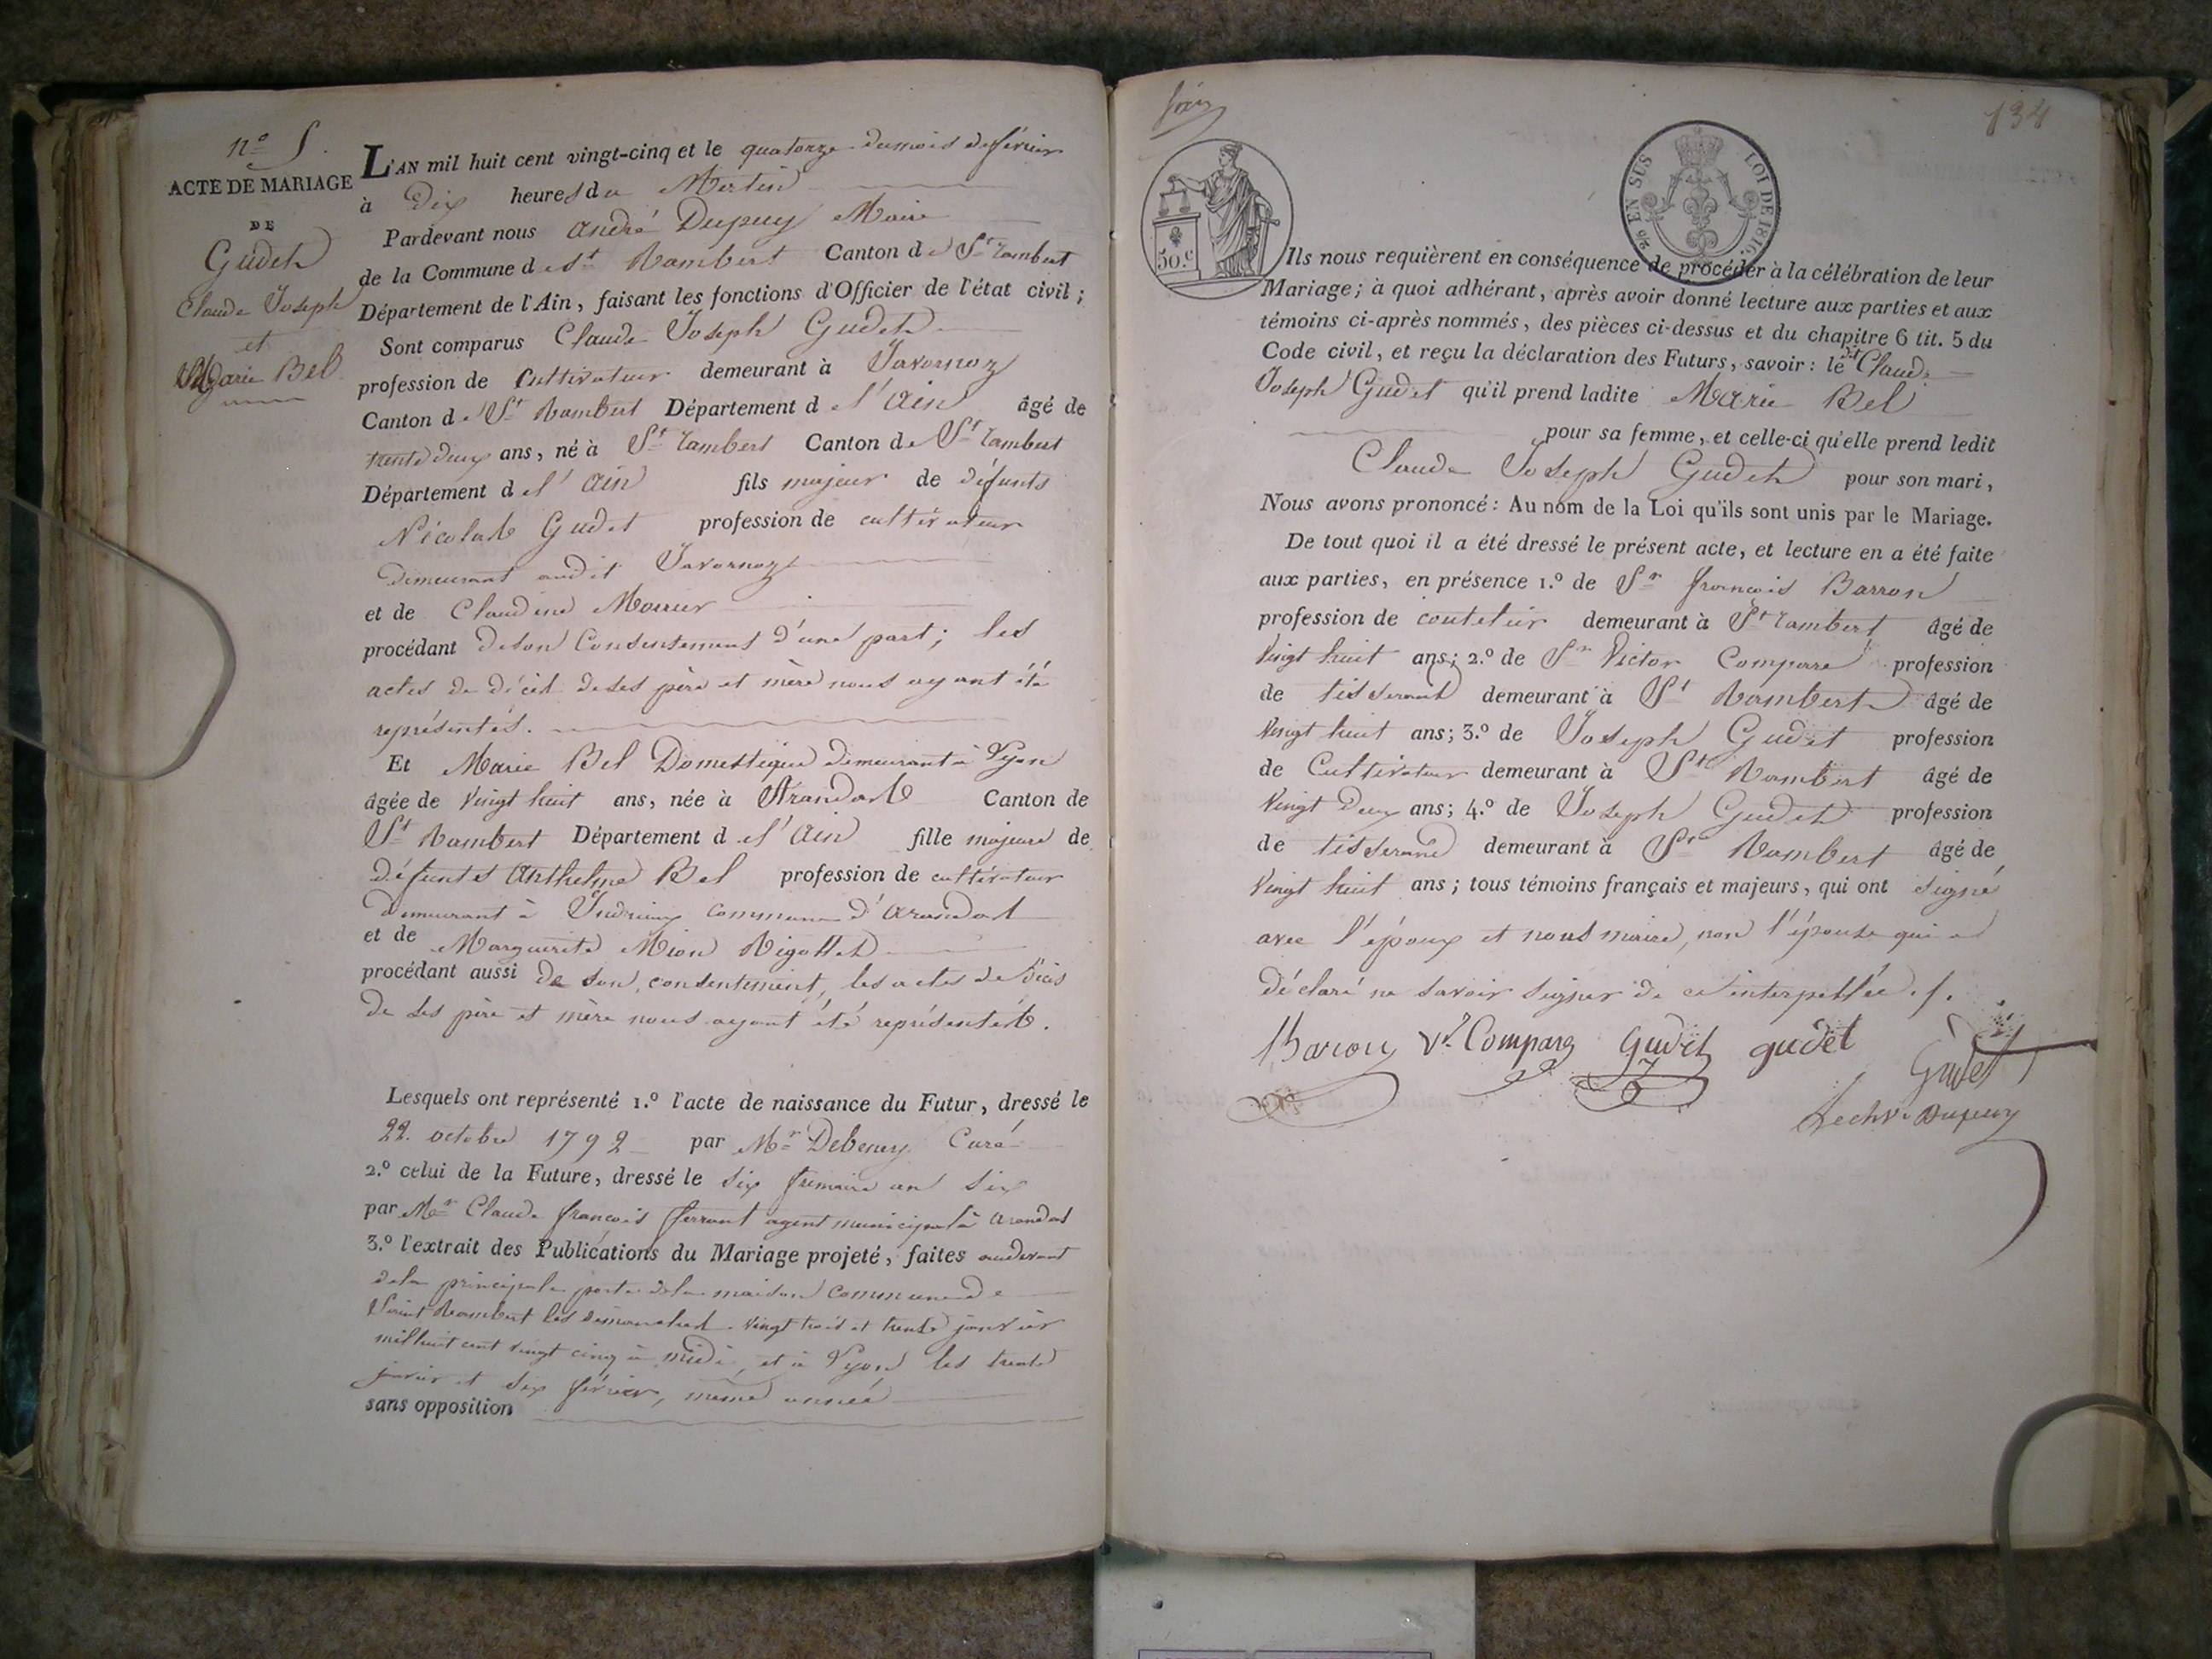 n.o 5.
ACTE DE MARIAGE
DE
Gudet
Claude Joseph
et
Marie Bel
L'AN mil huit cent vingt-cinq et le quatorze du mois de février
à Dix heures du Matin
Pardevant nous André Dupuy Maire
de la Commune de St Rambert Canton de St Rambert
Département de l'Ain, faisant les fonctions d'Officier de l'état civil;
Sont comparus Claude Joseph Gudet
profession de Cultivateur demeurant à Javornoz
Canton de St Rambert Département de l'Ain âgé de
trente deux ans, né à St Rambert Canton de St Rambert
Département de l'Ain fils majeur de défunts
Nicolas Gudet profession de cultivateur
demeurant audit Javornoz
et de Claudine
procédant de son Consentement d'une part; les
actes de décès de ses père et mère nous ayant été
représentés.
Et Marie Bel Domestique demeurant à Lyon
âgée de Vingt huit ans, née à Arandas Canton de
St Rambert Département de l'Ain fille majeure de
défunts Anthelme Bel profession de cultivateur
demeurant à Indrieux commune d'Arandas
et de Marguerite Mion Rigollet
procédant aussi de son consentement, les actes de décès
de ses père et mère nous ayant été représentés.
Lesquels ont représenté 1.o l'acte de naissance du Futur, dressé le
22 octobre 1792 par Mr Debeney Curé
2.o celui de la Future, dressé le six frimaire an six
par Mr Claude françois ferrant agent municipal à arandas
3.o l'extrait des Publications du Mariage projeté, faites audevant
de la principale porte de la maison commune de
Saint Rambert les dimanches vingt trois et trente janvier
mil huit cent vingt cinq à midi, et à Lyon les trente
janvier et six février, même année
sans opposition
134
50.c
EN SUS
LOI DE 1816.
Ils nous requièrent en conséquence de procéder à la célébration de leur
Mariage; à quoi adhérant, après avoir donné lecture aux parties et aux
témoins ci-après nommés, des pièces ci-dessus et du chapitre 6 tit. 5 du
Code civil, et reçu la déclaration des Futurs, savoir: le dit Claude
Joseph Gudet qu'il prend ladite Marie Bel
pour sa femme, et celle-ci qu'elle prend ledit
Claude Joseph Gudet pour son mari,
Nous avons prononcé: Au nom de la Loi qu'ils sont unis par le Mariage.
De tout quoi il a été dressé le présent acte, et lecture en a été faite
aux parties, en présence 1.o de Sr françois Barron
profession de coutelier demeurant à St Rambert âgé de
Vingt huit ans; 2.o de Sr Victor Comparé profession
de tisserand demeurant à St Rambert âgé de
Vingt huit ans; 3.o de Joseph Gudet profession
de Cultivateur demeurant à St Rambert âgé de
Vingt Deux ans; 4.o de Joseph Gudet profession
de tisserand demeurant à St Rambert âgé de
Vingt huit ans; tous témoins français et majeurs, qui ont signé
avec l'époux et nous maire, non l'épouse qui a
déclaré ne savoir signer de ce interpellée.
Baron Vr Comparé Gudet gudet
Gudet
Dupuy